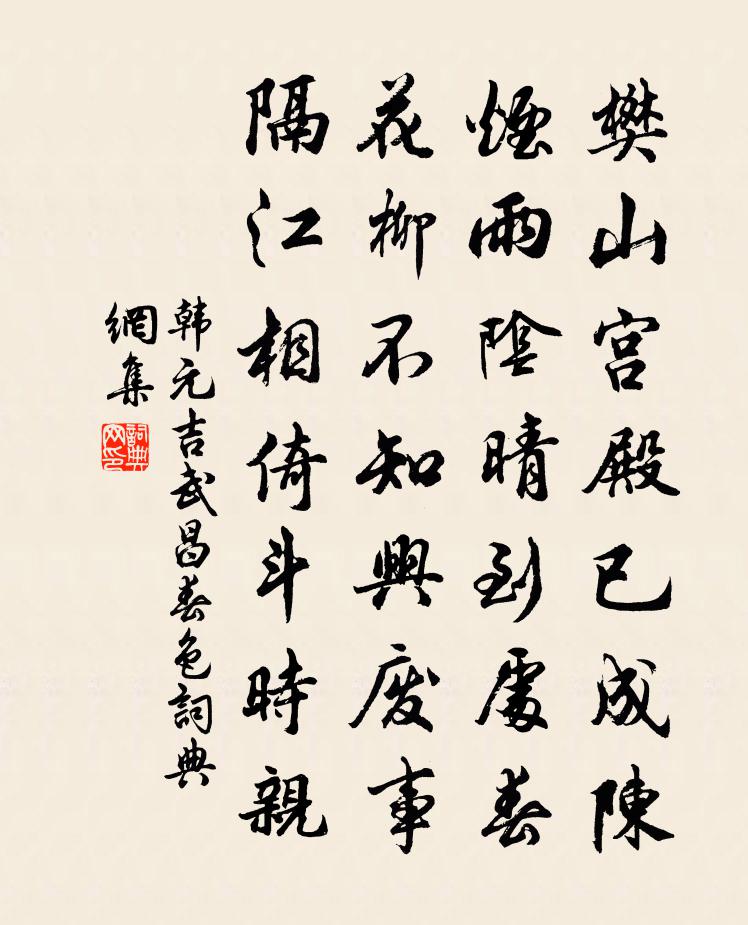 樊山宫殿已成陳
煙雨陰晴到處春
花柳不知興廢事
隔江相倚斗時親
韩元吉武昌春色詞典
網集
詞典網印